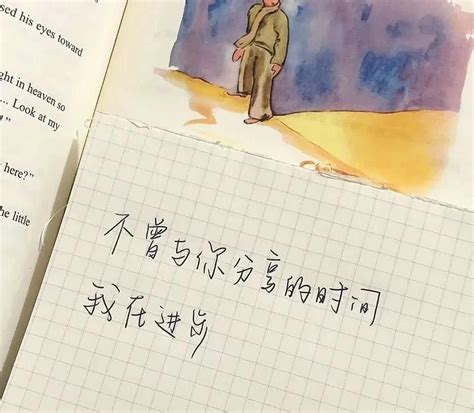 sed his eyes toward
ght in heaven so
... Look at my
"
here?"
he little
不曾与你分享的时间
我在进步